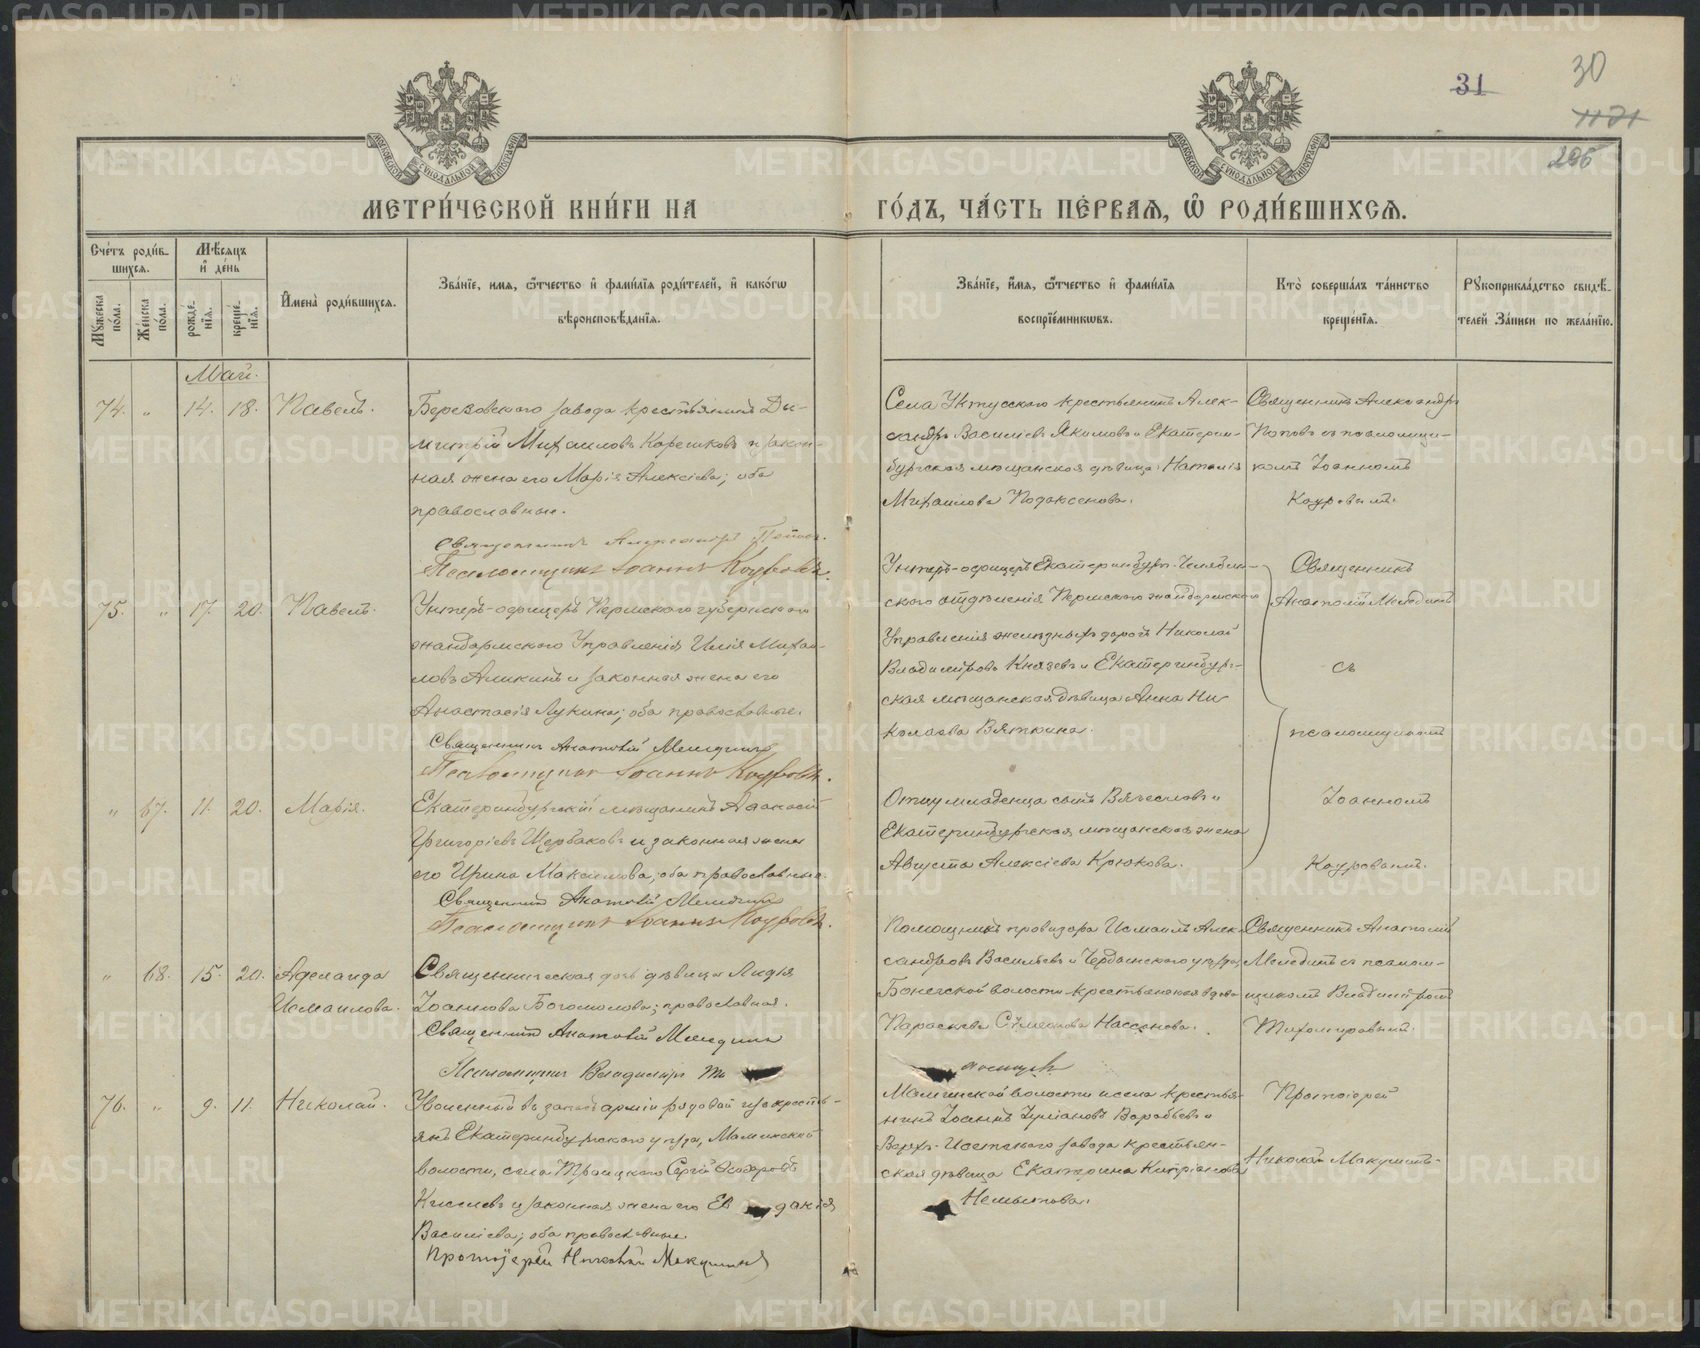 31
30
МЕТРИЧЕСКОЙ КНИГИ НА
ГОДЪ, ЧАСТЬ ПЕРВАЯ, Ѡ РОДИВШИХСЯ.
Счетъ родив-
шихся.
Мѣсяцъ
и день
Мужеска
пола.
Женска
пола.
рожде-
нїя.
креще-
нїя.
Имена родившихся.
Званїе, имя, ѿчество и фамилїя родителей, и какогѡ
вѣроисповѣданїя.
Званїе, имя, ѿчество и фамилїя
воспрїемникѡвъ.
Кто совершалъ таинство
крещенїя.
Рукоприкладство свидѣ-
телей записи по желанїю.
Май.
74. " 14. 18. Павелъ.
Березовскаго завода крестьянинъ Ди-
митрій Михаиловъ Корешковъ и закон-
ная жена его Марія Алексіева; оба
православные.
Священникъ Александръ Поповъ.
Псаломщикъ Іоаннъ Коуровъ.
Села Уктусскаго крестьянинъ Алек-
сандръ Василіевъ Якимовъ и Екатерин-
бургская мѣщанская дѣвица Наталія
Михаилова
Священникъ Александръ
Поповъ съ псаломщи-
комъ Іоанномъ
Коуровымъ.
75. " 17. 20. Павелъ.
Унтеръ-офицеръ Пермскаго губернскаго
жандармскаго Управленія Илія Михаи-
ловъ Аликинъ и законная жена его
Анастасія Лукина; оба православные.
Священникъ Анатолій
Псаломщикъ Іоаннъ Коуровъ.
Унтеръ-офицеръ Екатеринбург.-Челябин-
скаго отдѣленія Пермскаго жандармскаго
Управленія желѣзныхъ дорогъ Николай
Владиміровъ Князевъ и Екатеринбург-
ская мѣщанская дѣвица Анна Ни-
колаева Вяткина.
Священникъ
Анатолій
съ
псаломщикомъ
Іоанномъ
Коуровымъ.
" 67. 11. 20. Марія.
Екатеринбургскій мѣщанинъ Аѳанасій
Григоріевъ Щербаковъ и законная жена
его Ирина Максимова; оба православные.
Священникъ Анатолій
Псаломщикъ Іоаннъ Коуровъ.
Отцу младенца сынъ Вячеславъ и
Екатеринбургская мѣщанская жена
Августа Алексіева Крюкова.
" 68. 15. 20. Аделаида
Исмаилова.
Священническая дочь дѣвица Лидія
Іоаннова Богомолова; православная.
Священникъ Анатолій
Псаломщикъ Владиміръ
Помощникъ провизора Исмаилъ Алек-
сандровъ Васильевъ и Чердынскаго уѣзда,
волости крестьянская вдова
Параскева Сѵмеонова
Священникъ Анатолій
съ псалом-
щикомъ Владиміромъ
Тихомировымъ.
76. " 9. 11. Николай.
Уволенный въ запасъ арміи рядовой изъ кресть-
янъ Екатеринбургскаго уѣзда, Маминской
волости, села Троицкаго Сергій
Киселевъ и законная жена его Евдокія
Василіева; оба православные.
Протоіерей Николай
Маминской волости и села крестья-
нинъ Іоаннъ Іуліановъ Воробьевъ и
Верхъ-Исетскаго завода крестьян-
ская дѣвица Екатерина Кипріанова
Немытова.
Протоіерей
Николай